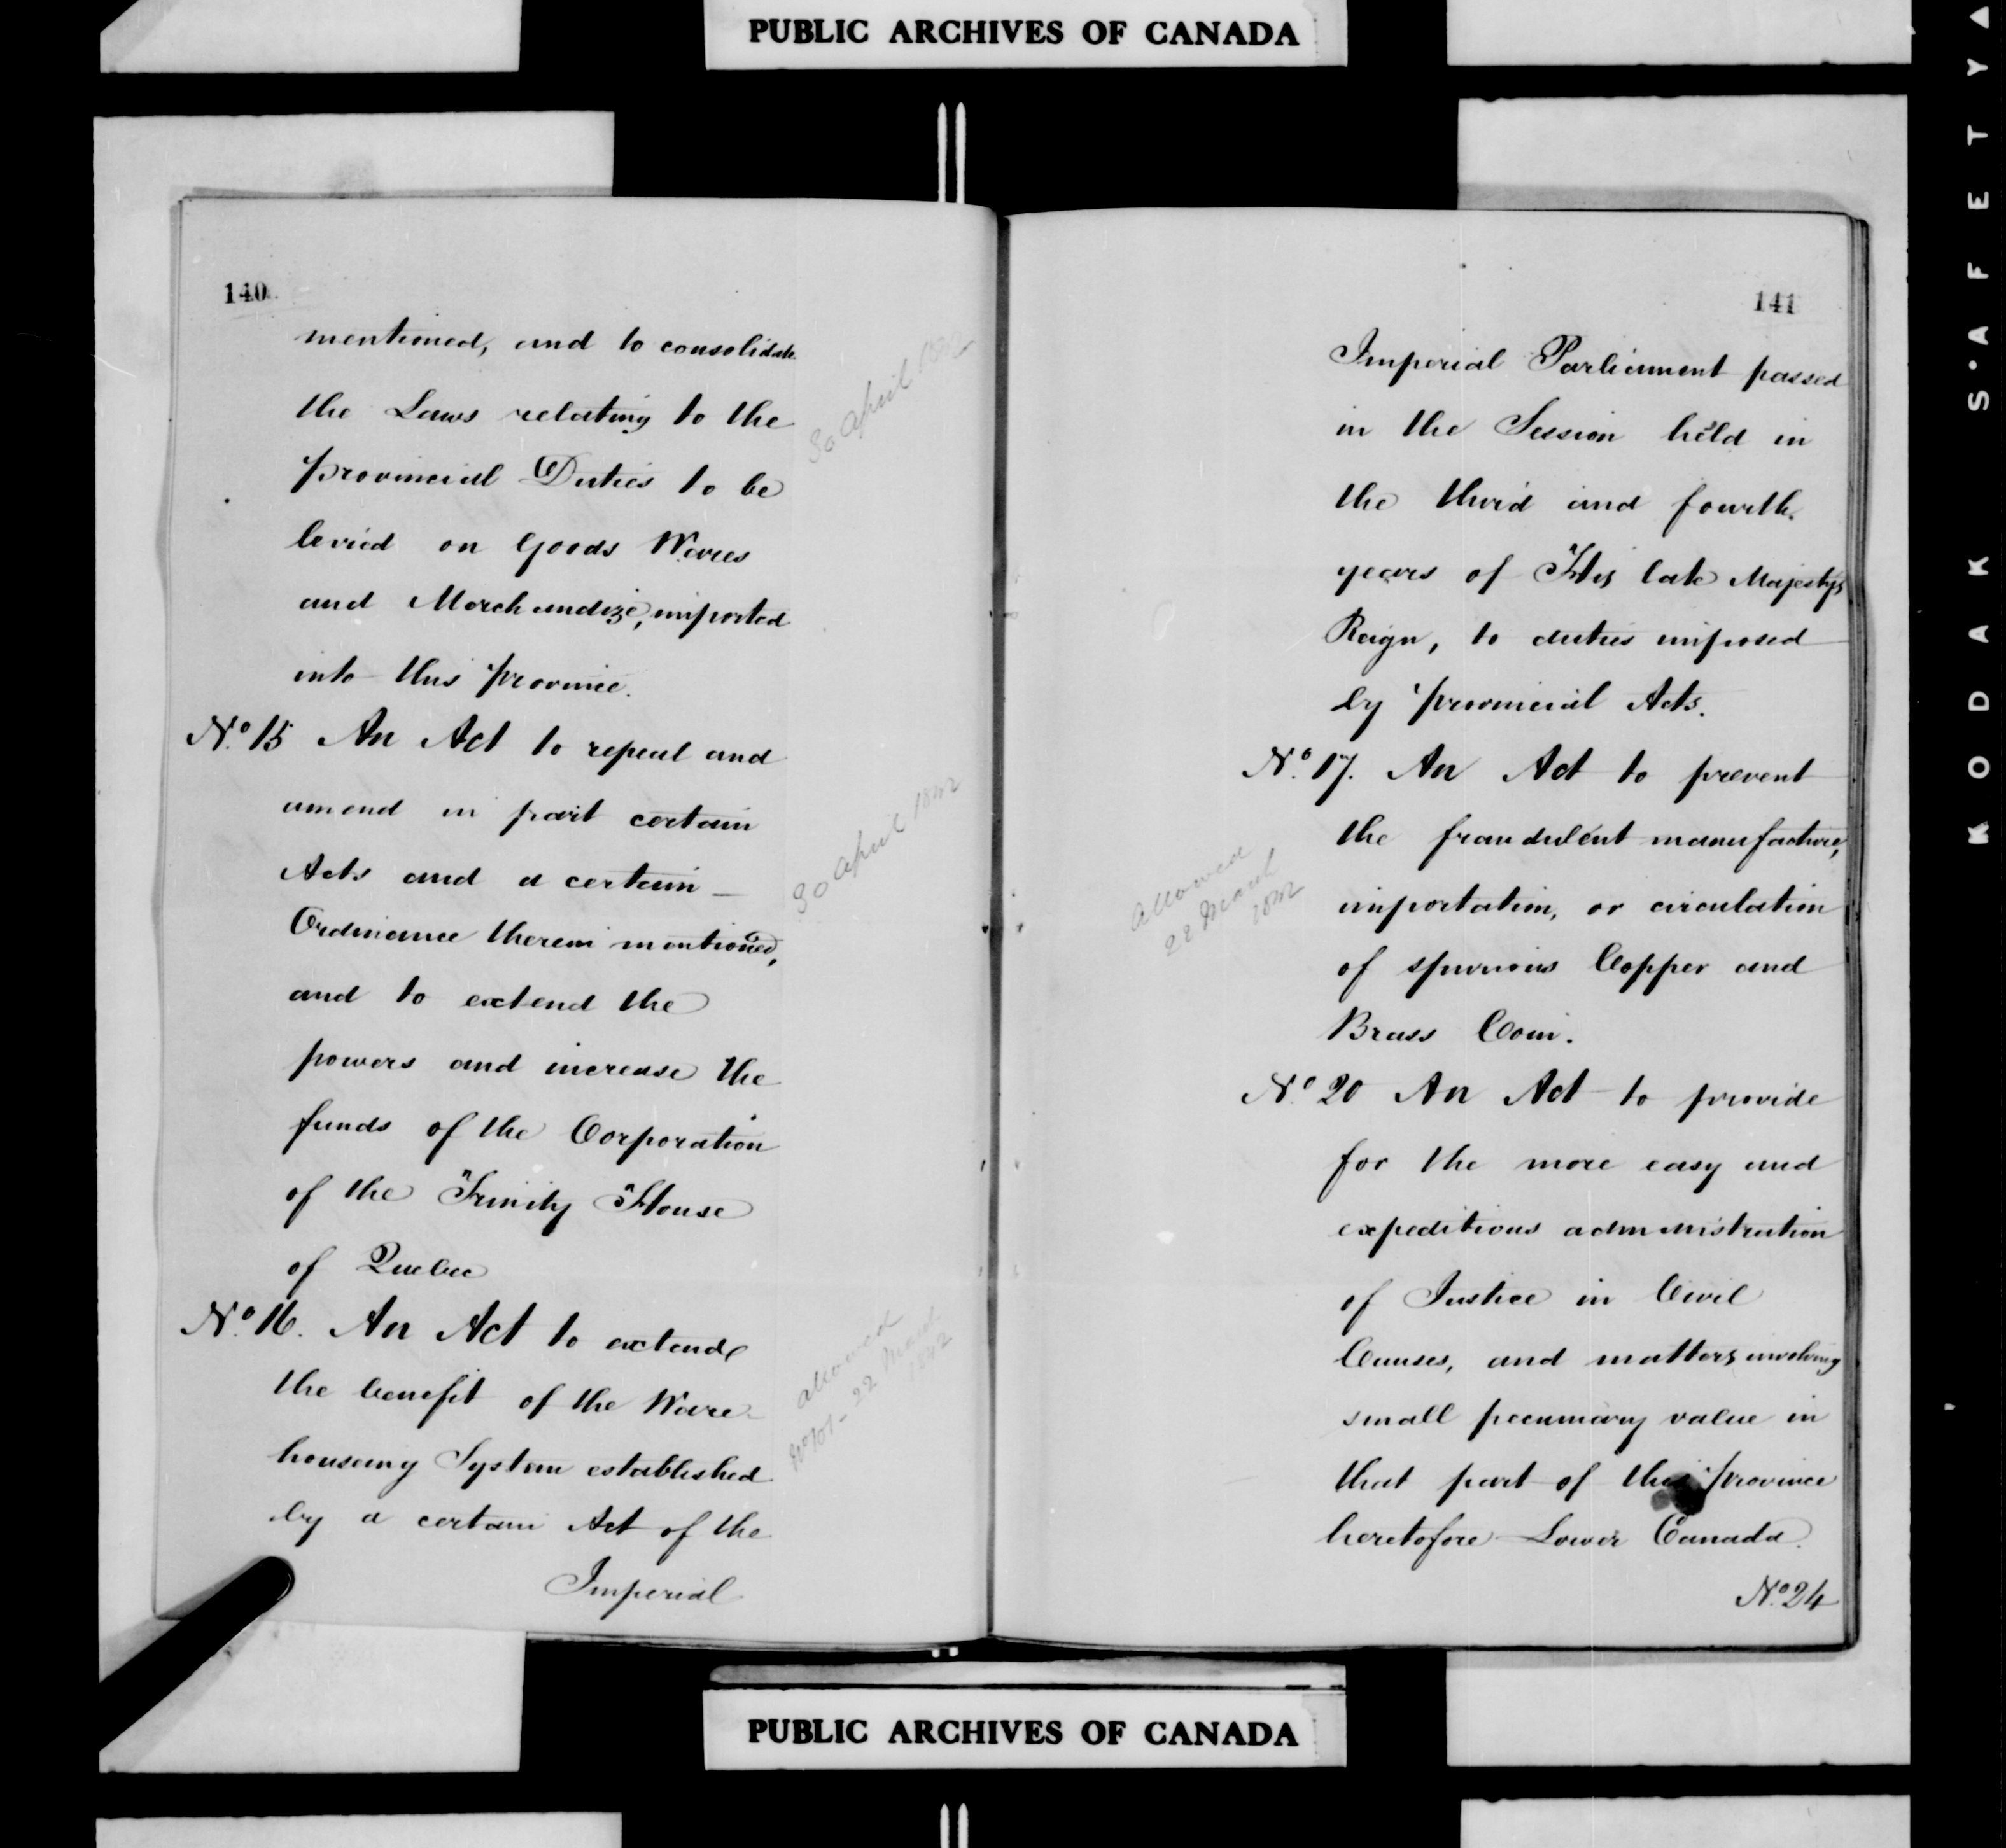 PUBLIC ARCHIVES OF CANADA
140
mentioned, and to consolidate
the Laws relating to the
provincial Duties to be
levied on Goods Wares
and Merchandize, imported
into this province.
30 April 1842
No. 15 An Act to repeal and
amend in part certain
Acts and a certain
Ordinance therein mentioned,
and to extend the
powers and increase the
funds of the Corporation
of the Trinity House
of Quebec
30 April 1842
No. 16. An Act to extend
the benefit of the Ware-
housing System established
by a certain Act of the
Imperial
allowed
22 March
1842
141
Imperial Parliament passed
in the Session held in
the third and fourth
years of His late Majesty's
Reign, to duties imposed
by provincial Acts.
No. 17. An Act to prevent
the fraudulent manufacture,
importation, or circulation
of spurious Copper and
Brass Coin.
allowed
22 March
1842
No. 20 An Act to provide
for the more easy and
expeditious administration
of Justice in Civil
Causes, and matters involving
small pecuniary value in
that part of this province
heretofore Lower Canada.
No. 24
PUBLIC ARCHIVES OF CANADA
KODAK S'AFETY